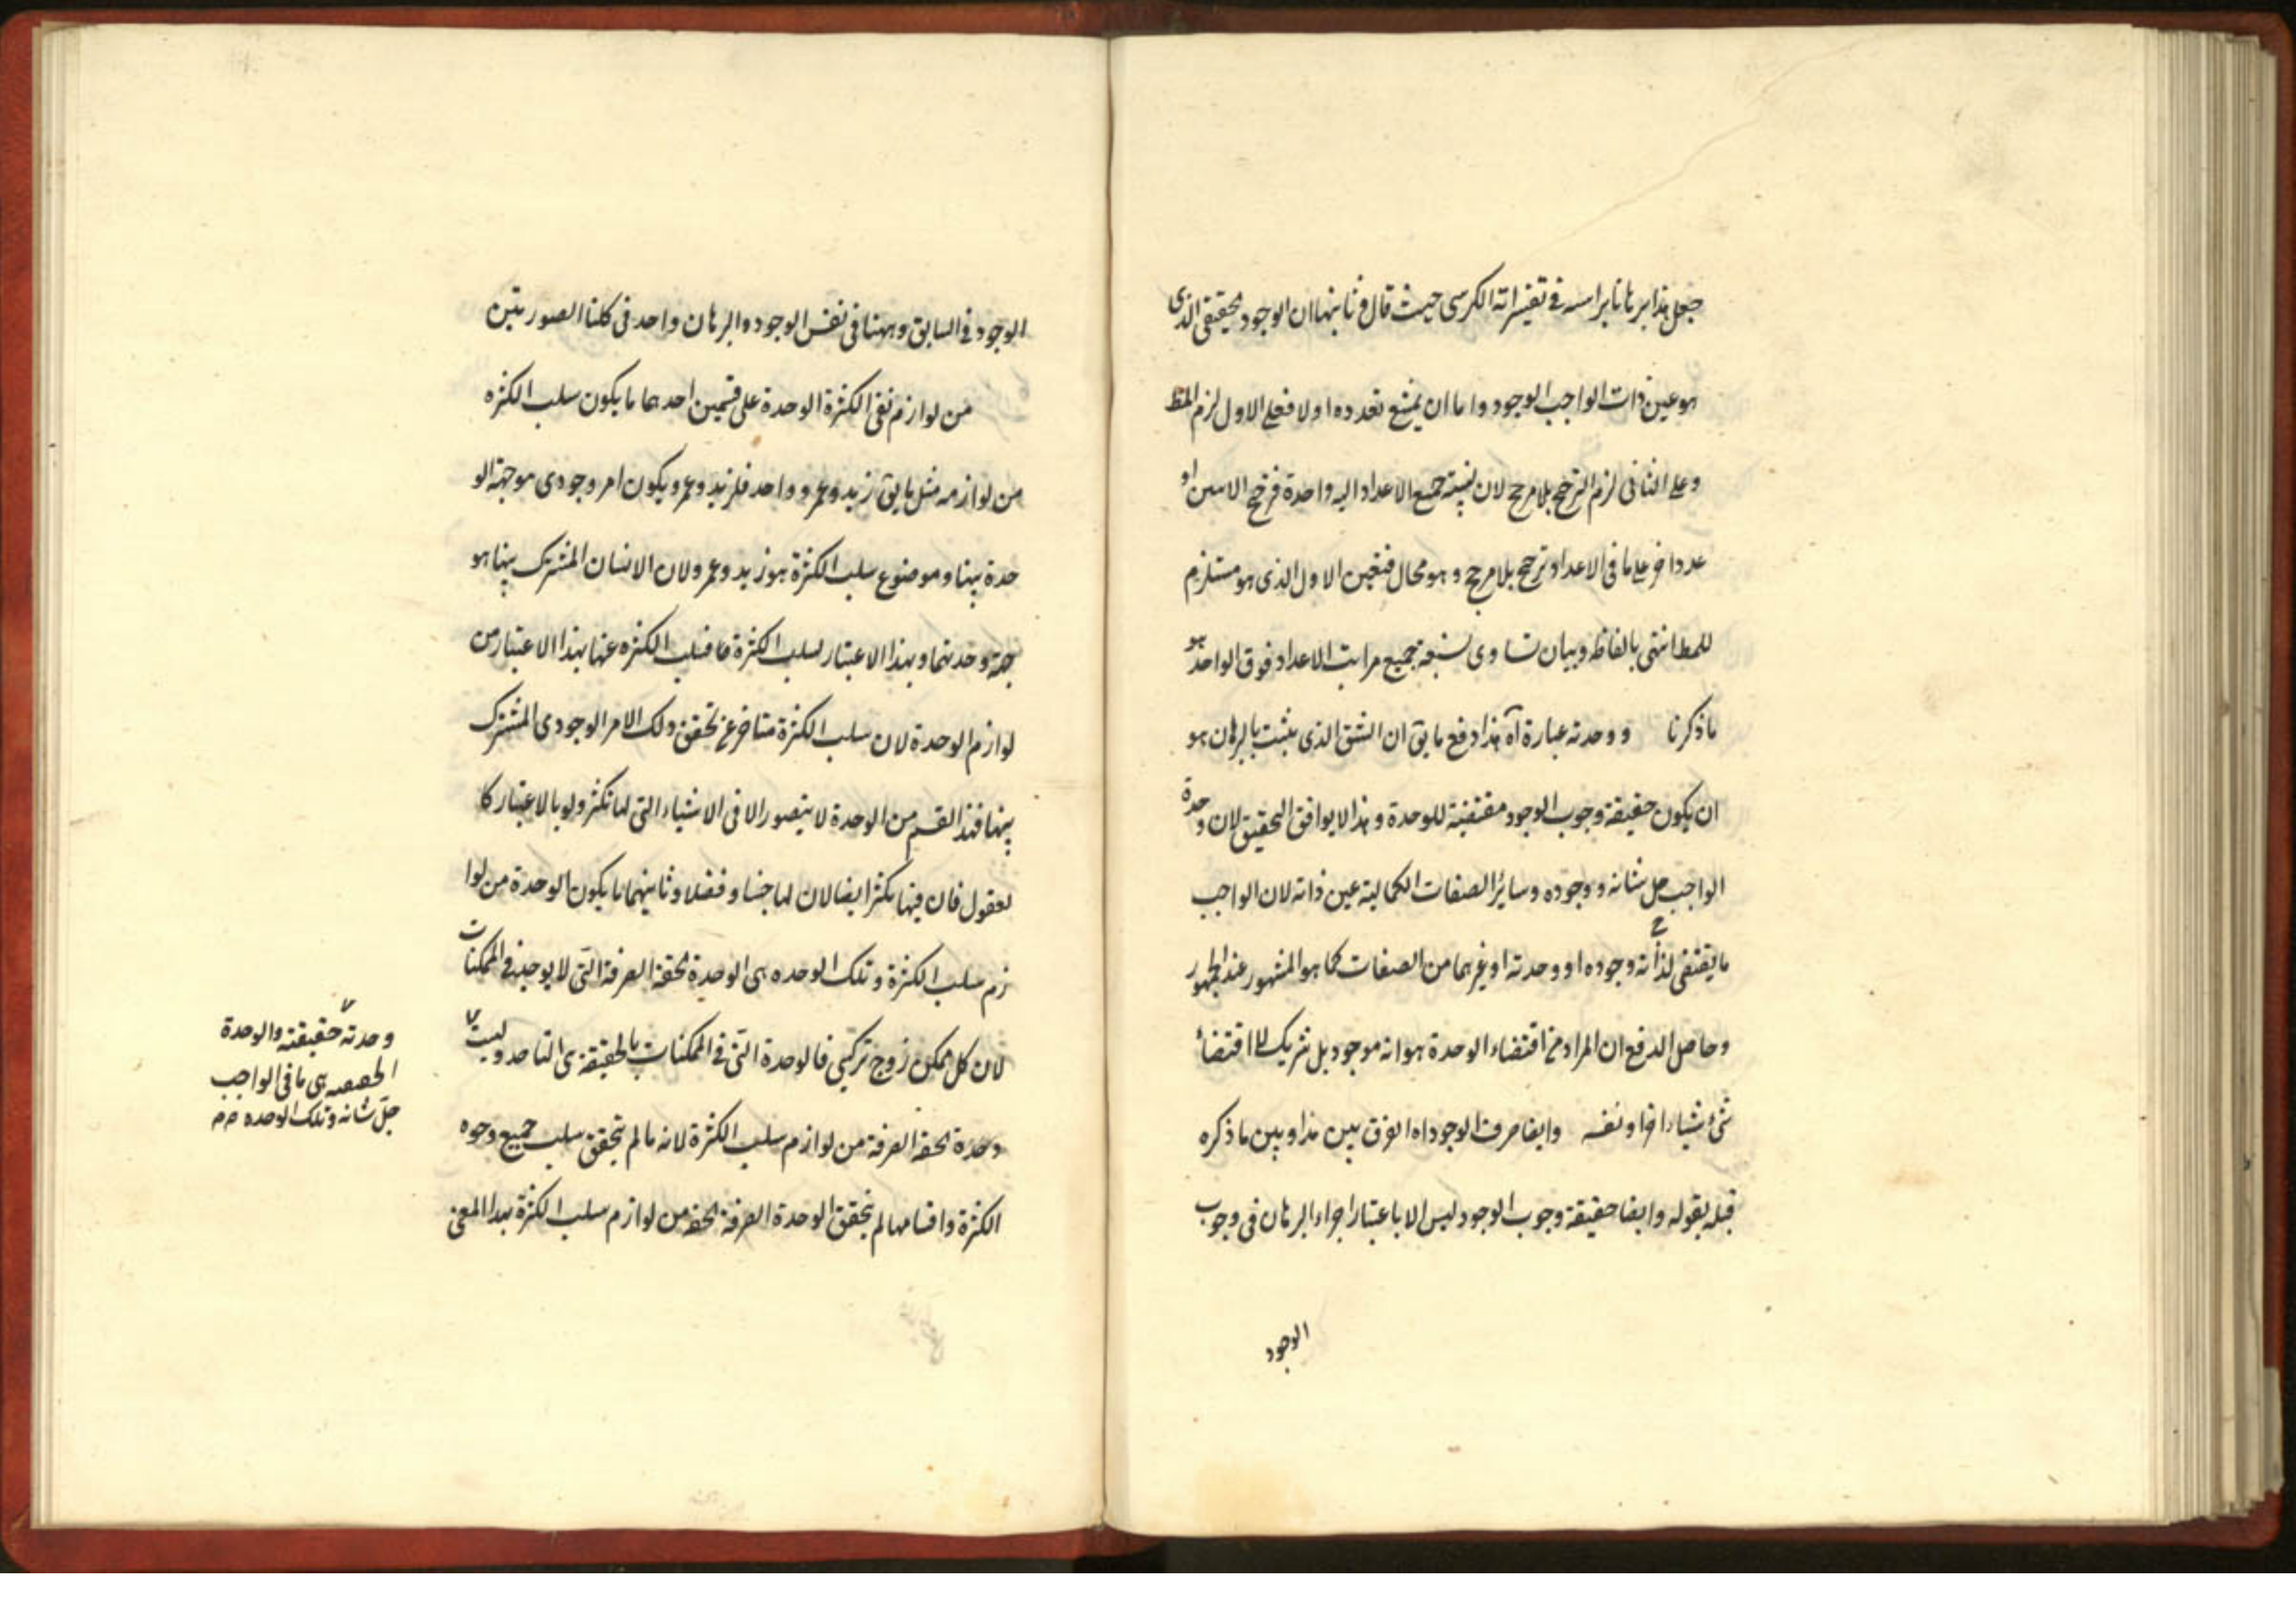 جعل هذا برهانا براسه فى تفسير اية الكرسى حيث قال و ثانيها ان الوجود الحقيقى الذى
هو عين ذات الواجب الوجود و اما ان يمتنع تعدده او لا فعلى الاول لزم المط
و على الثانى لزم الترجح بلا مرجح لان نسبة جميع الاعداد اليه واحدة فترجح الاثنين او
عدد اخر على ما فى الاعداد ترجح بلا مرجح و هو محال فتعين الاول الذى هو مستلزم
للمط انتهى بالفاظه و بيان تساوى نسبة جميع مراتب الاعداد فوق الواحد هو
ما ذكرنا و وحدته عبارة آه هذا دفع ما يق ان الشق الذى يثبت بالبرهان هو
ان يكون حقيقة وجوب الوجود مقتضية للوحدة و هذا لا يوافق التحقيق لان وحدة
الواجب جل شانه و وجوده و ساير الصفات الكمالية عين ذاته لان الواجب
ما يقتضى لذاته وجوده او وحدته او غيرهما من الصفات كما هو المشهور عند الجمهور
و حاصل الدفع ان المراد من اقتضاء الوحدة هو انه موجود بل شريك لا اقتضاء
شئ شياء اخر او نفسه و ايضا صرف الوجود اه الفرق بين هذا و بين ما ذكره
قبله بقوله و ايضا حقيقة وجوب الوجود ليس الا باعتبار اجراء البرهان فى وجوب
الوجود
الوجود فى السابق و ههنا فى نفس الوجود و البرهان واحد فى كلتا الصورتين
من لوازم نفى الكثرة الوحدة على قسمين احدهما ما يكون سلب الكثره
من لوازمه مثل ما يق زيد و عمرو واحد فلزيد و عمرو يكون امر وجودى موجهة الو
حدة بينهما و موضوع سلب الكثرة هو زيد و عمرو لان الانسان المشترك بينهما هو
جهة وحدتهما و بهذا الاعتبار لسلب الكثرة فسلب الكثره عنهما بهذا الاعتبار من
لوازم الوحدة لان سلب الكثرة متاخر عن تحقق ذلك الامر الوجودى المشترك
بينهما فهذا القسم من الوحدة لا يتصور الا فى الاشياء التى لها تكثر و لو بالاعتبار كا
لعقول فان فيها تكثر ايضا لان لها جنسا و فصلا و ثانيهما ما يكون الوحدة من لوا
زم سلب الكثرة و تلك الوحده هى الوحدة الحقة الصرفة التى لا يوجد فى الممكنات
لان كل ممكن زوج تركيبى فالوحدة التى فى الممكنات بالحقيقة هى اتحاد و ليست
وحدة الحقة الصرفة من لوازم سلب الكثرة لانه ما لم يتحقق سلب جميع وجوه
الكثرة و اقسامها لم يتحقق الوحدة الصرفة الحقة من لوازم سلب الكثرة بهذا المعنى
وحدته حقيقته و الوحدة
الحقة هى ما فى الواجب
جل شانه و تلك الوحده